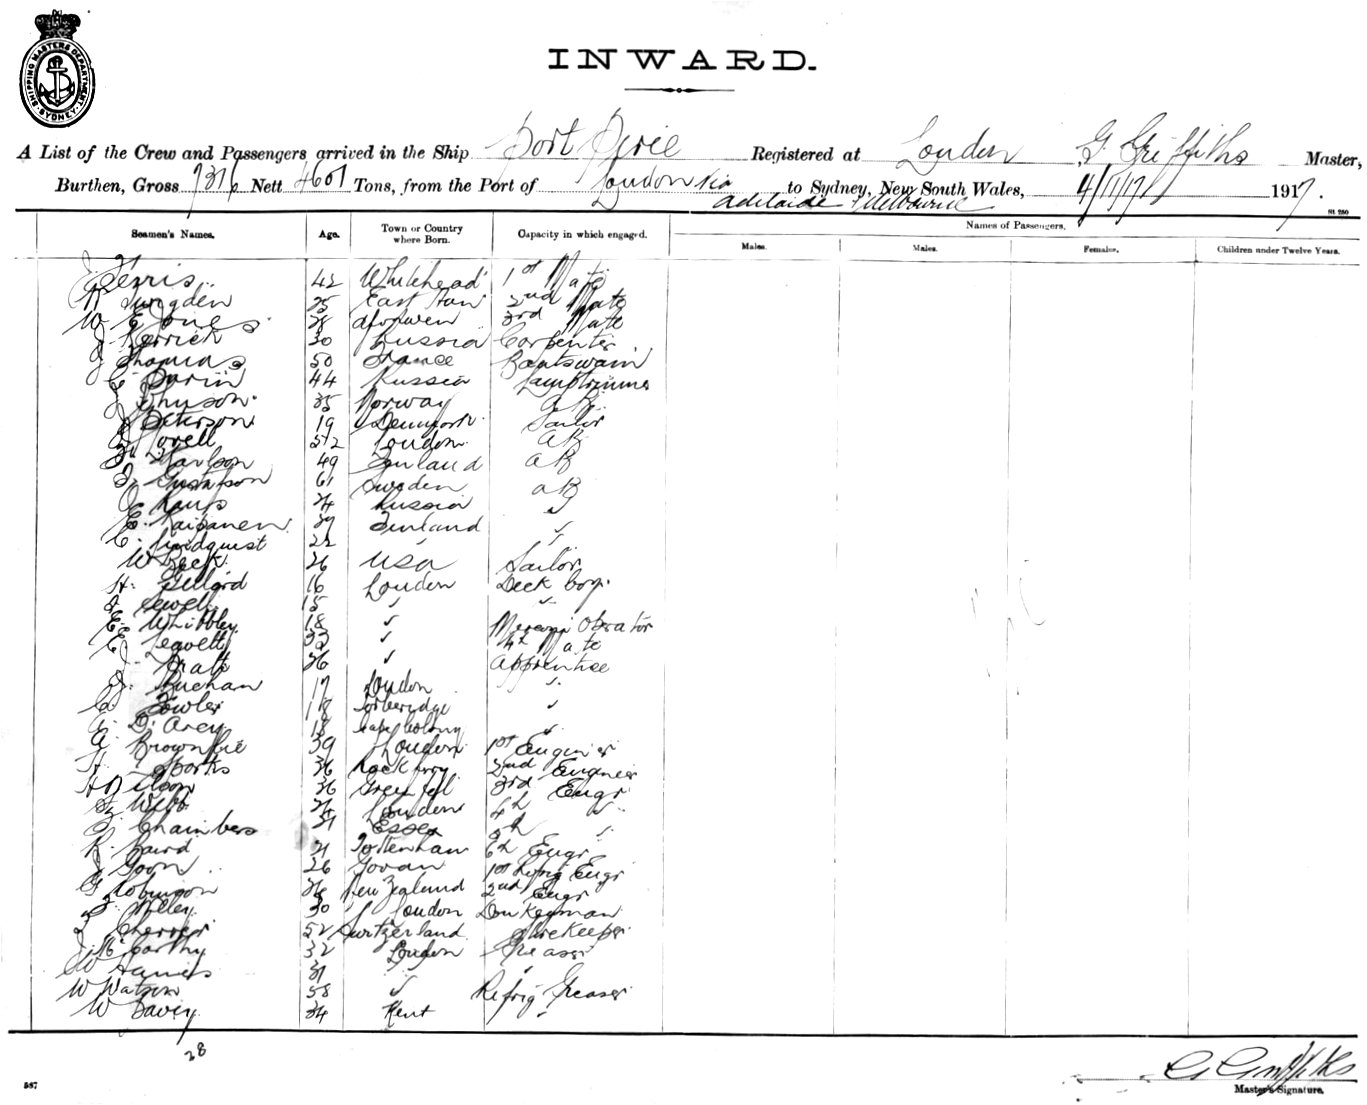 SHIPPING MASTERS DEPARTMENT SYDNEY
INWARD.
A List of the Crew and Passengers arrived in the Ship Port Pirie Registered at London G Griffiths Master,
Burthen, Gross Nett 4601 Tons, from the Port of London via Adelaide & Melbourne to Sydney, New South Wales, 4/11/17 1917.
SI. 280
Seamen's Names. Age. Town or Country where Born. Capacity in which engaged. Names of Passengers.
Males. Males. Females. Children under Twelve Years.
Ferris 42 Whitehead 1st Mate
2nd Mate
W E Jones 3rd Mate
J Kerrich 30 Russia Carpenter
J Thomas 50 France Boatswain
44 Russia Lamptrimmer
J Johnson 35 Norway AB
J Peterson 19 Denmark Sailor
Lovell London AB
Karlson 49 Finland AB
Gustafson 61 Sweden AB
Russia "
E. Kaipanen 39 Finland "
C. Lindquist 22 " "
W Beck 26 USA Sailor
H. Gillard 16 London Deck boy.
Sewell 15 " "
E. Whibbley 18 " Marconi Operator
Leavett " 4th Mate
Pratt " Apprentice
Buchan 17 London "
Fowler 18 "
D'Arcy 18 Cape Colony "
Brownfie 39 London 1st Engineer
H. Sparks 36 2nd Engineer
36 3rd Engr
Webb London 4th "
Chambers Essex 5th "
R. Baird 21 Tottenham 6th Engr
J Goon 26 Govan 1st Refrig Engr
G Robinson New Zealand 2nd Engr
Willey 30 London Donkeyman
Sherrer 52 Switzerland Storekeeper
J McCarthy 32 London Greaser
W Hames "
W Watson 58 " Refrig Greaser
W Davey 34 Kent "
28
587
G Griffiths
Master's Signature.